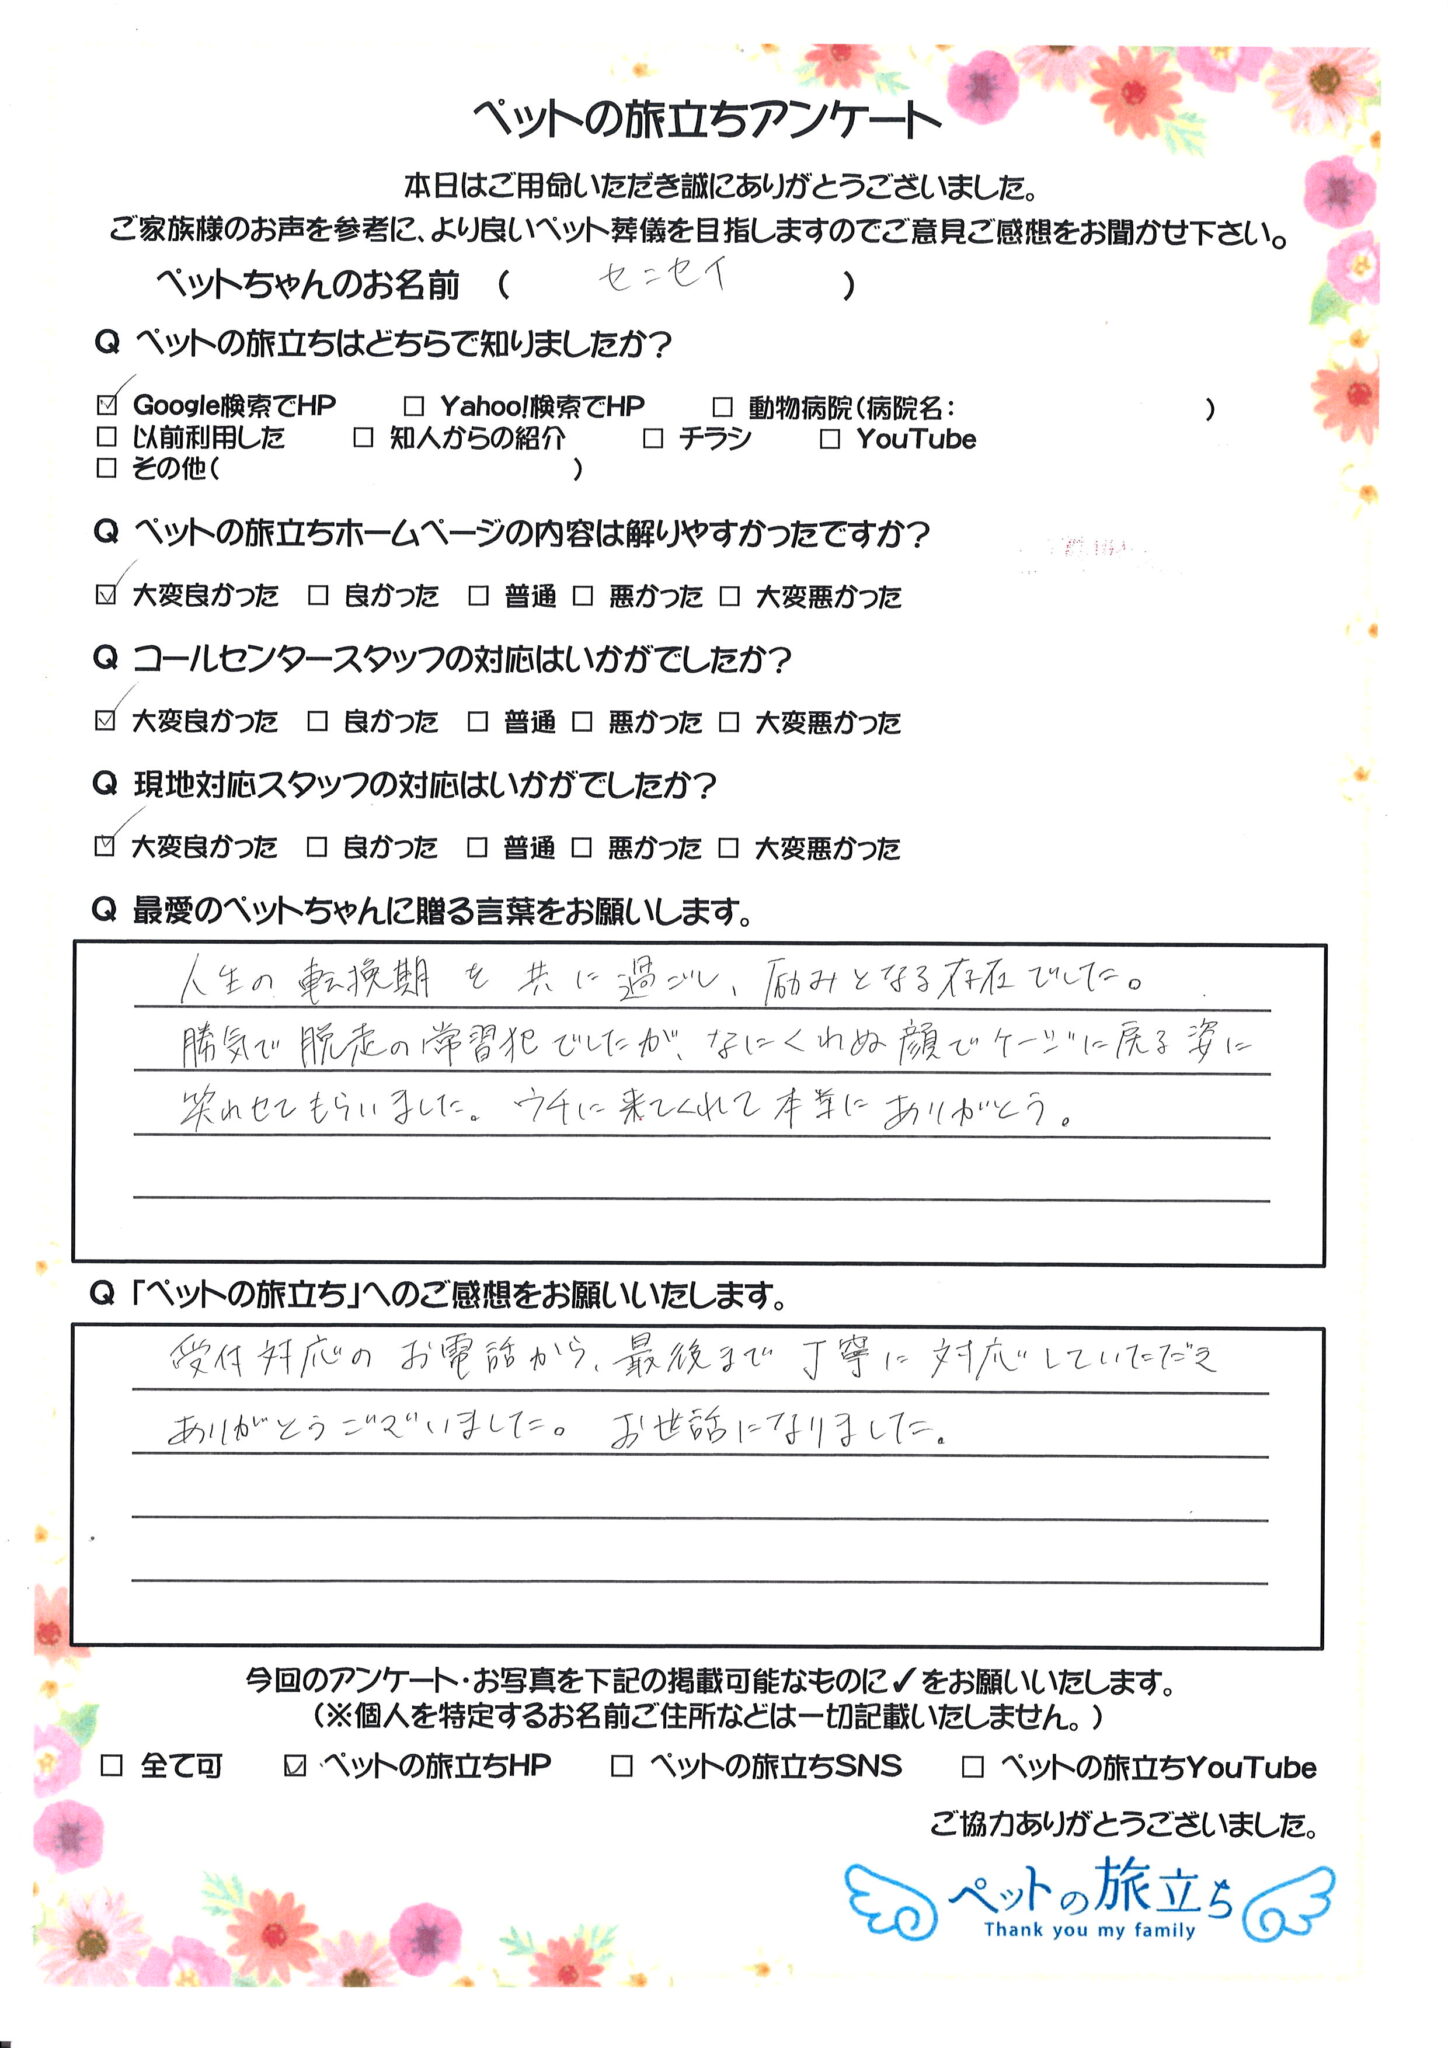 ペットの旅立ちアンケート
本日はご用命いただき誠にありがとうございました。
ご家族様のお声を参考に、より良いペット葬儀を目指しますのでご意見ご感想をお聞かせ下さい。
ペットちゃんのお名前 ( センセイ )
Q ペットの旅立ちはどちらで知りましたか?
☑ Google検索でHP □ Yahoo!検索でHP □ 動物病院(病院名: )
□ 以前利用した □ 知人からの紹介 □ チラシ □ YouTube
□ その他( )
Q ペットの旅立ちホームページの内容は解りやすかったですか?
☑ 大変良かった □ 良かった □ 普通 □ 悪かった □ 大変悪かった
Q コールセンタースタッフの対応はいかがでしたか?
☑ 大変良かった □ 良かった □ 普通 □ 悪かった □ 大変悪かった
Q 現地対応スタッフの対応はいかがでしたか?
☑ 大変良かった □ 良かった □ 普通 □ 悪かった □ 大変悪かった
Q 最愛のペットちゃんに贈る言葉をお願いします。
人生の転換期を共に過ごし、励みとなる存在でした。
勝気で脱走の常習犯でしたが、なにくれぬ顔でケージに戻る姿に
笑わせてもらいました。ウチに来てくれて本当にありがとう。
Q 「ペットの旅立ち」へのご感想をお願いいたします。
受付対応のお電話から、最後まで丁寧に対応していただき
ありがとうございました。お世話になりました。
今回のアンケート・お写真を下記の掲載可能なものに✓をお願いいたします。
(※個人を特定するお名前ご住所などは一切記載いたしません。)
□ 全て可 ☑ ペットの旅立ちHP □ ペットの旅立ちSNS □ ペットの旅立ちYouTube
ご協力ありがとうございました。
ペットの旅立ち
Thank you my family